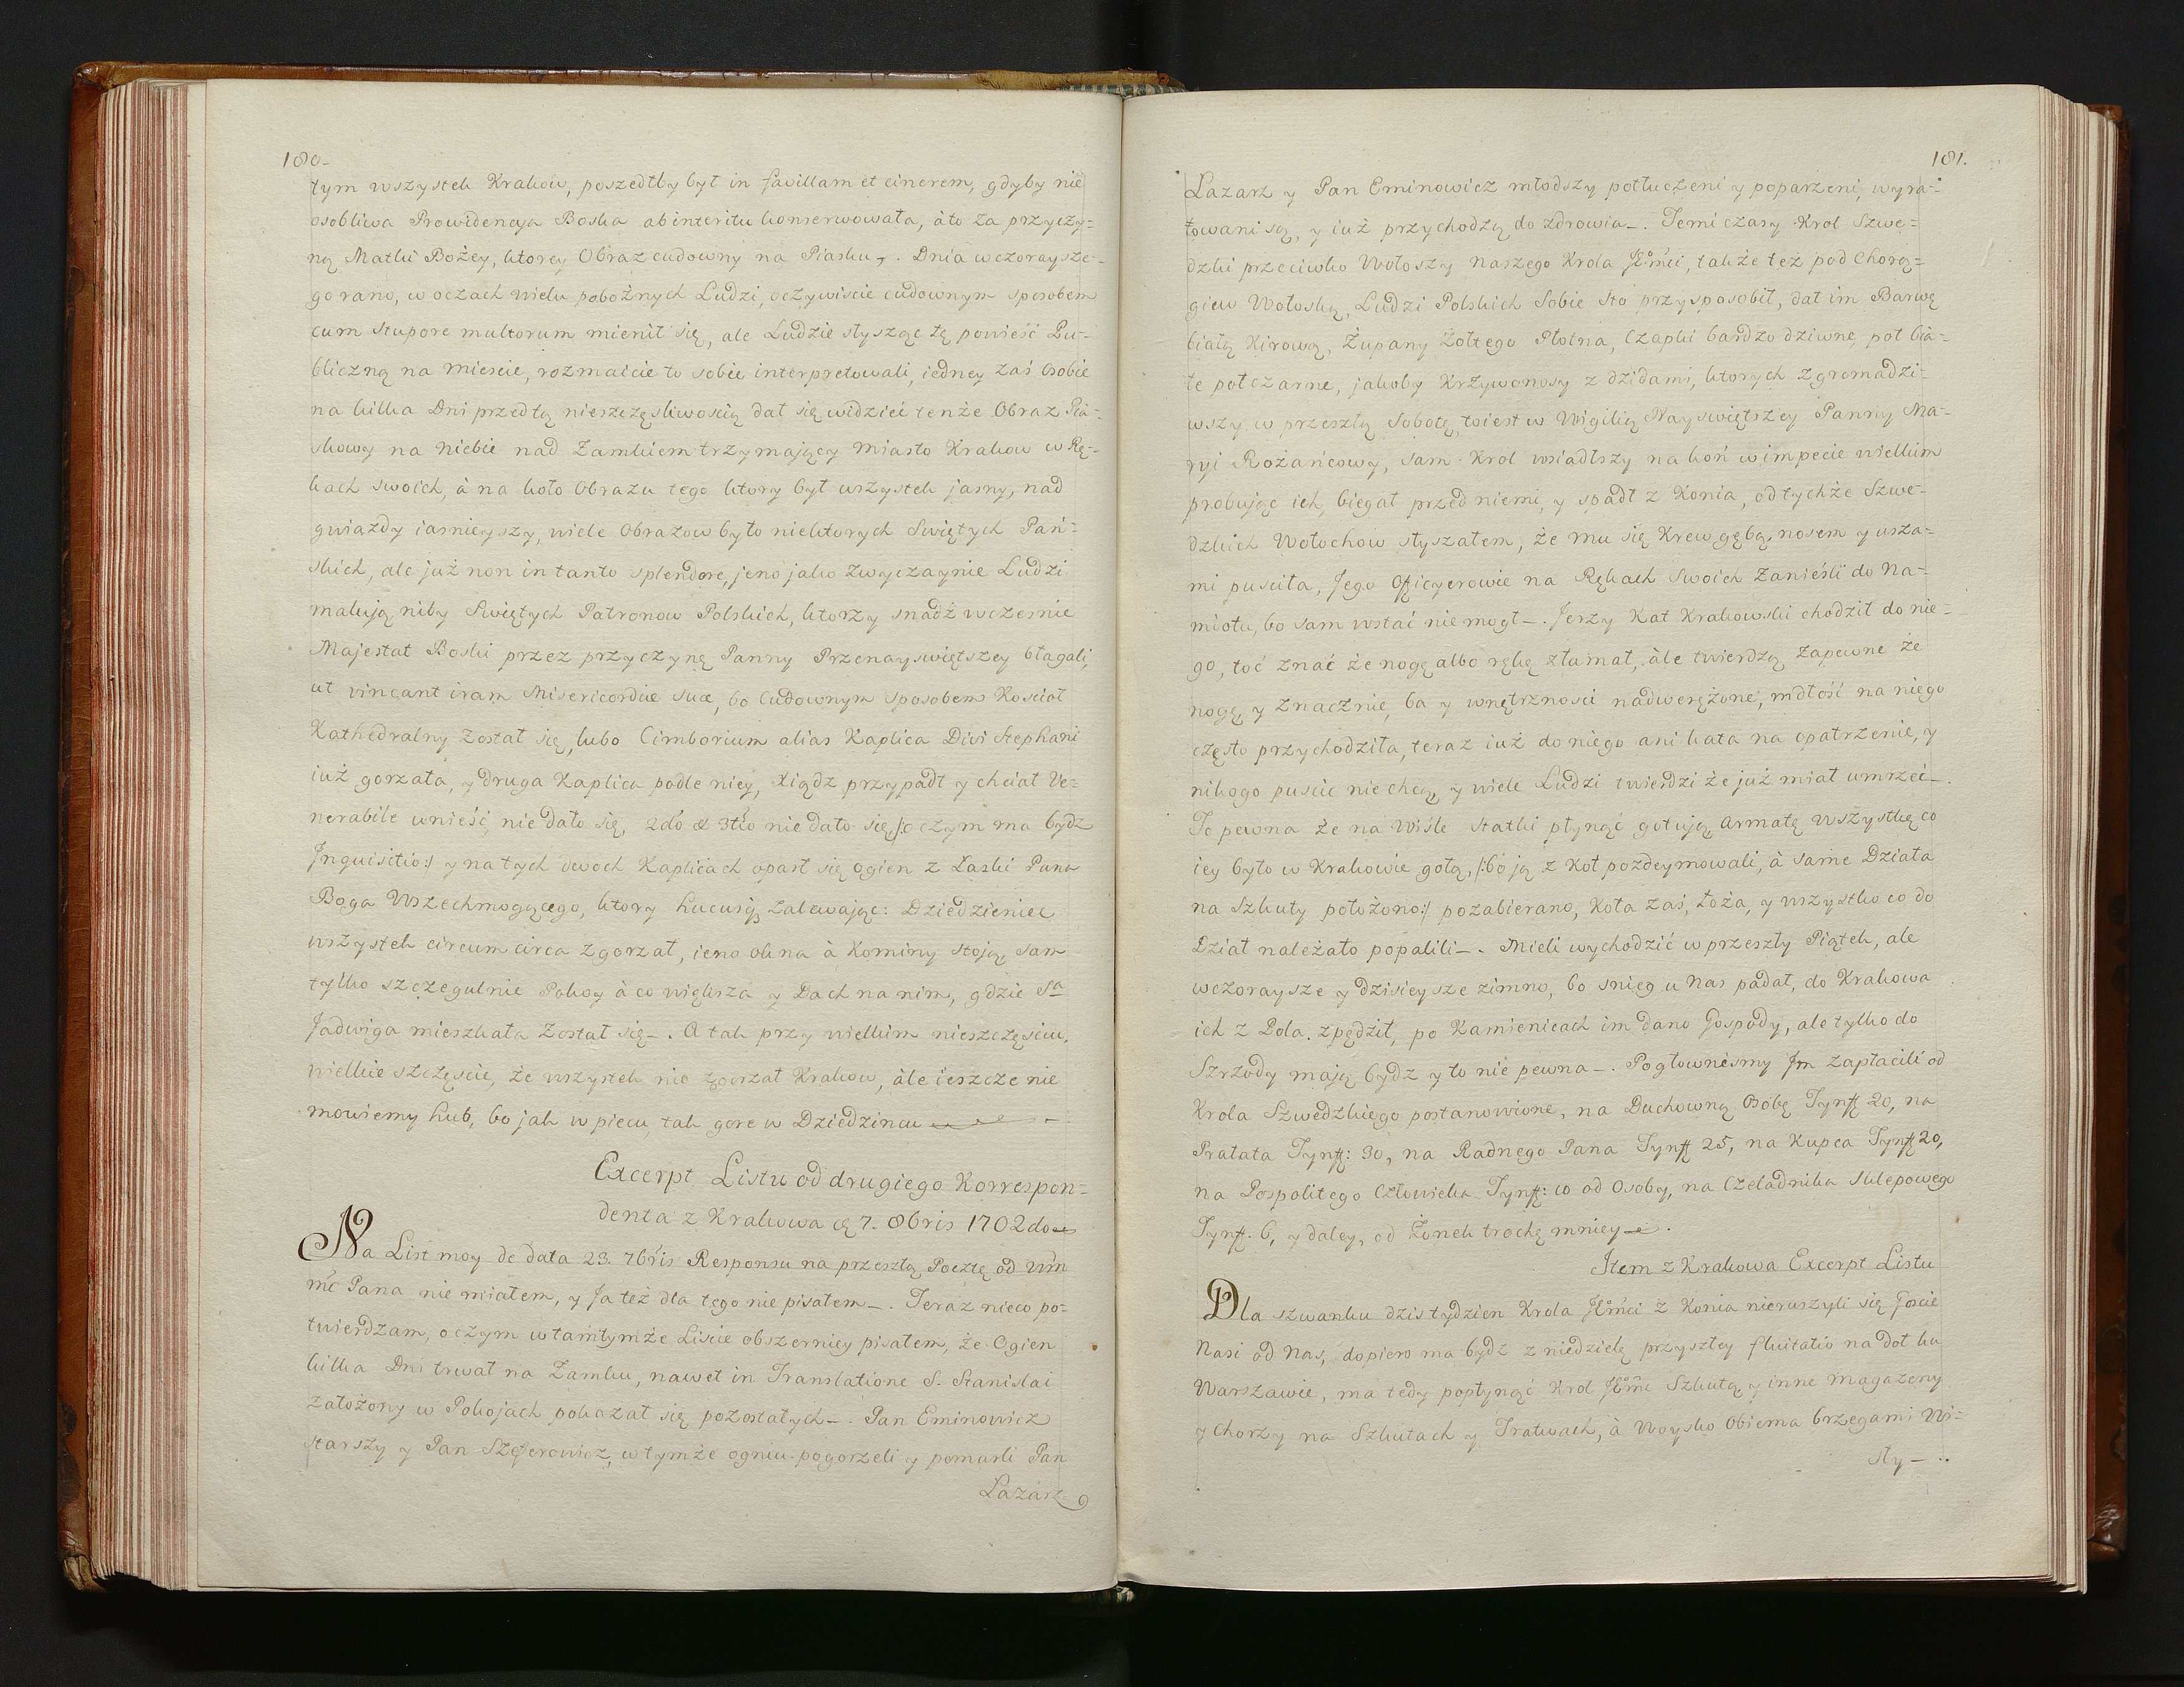 180.
tym wszystek Krakow, poszedłby był in favillam et cinerem, gdyby nie
osobliwa Prowidencya Boska ab interitu konserwowała, à to za przyczy=
ną Matki Bożey, ktorey Obraz cudowny na Piasku. Dnia wczoraysze-
go rano, w oczach wielu pobożnych Ludzi, oczywiscie cudownym sposobem
cum stupore multorum mienił się, ale Ludzie słysząc tę powieść Pu-
bliczną na miescie, rozmaicie to sobie interpretowali, iedney zaś Osobie
na kilka Dni przed tą nieszczęsliwością dał się widzieć tenże Obraz Pia-
skowy na niebie nad Zamkiem trzymający miasto Krakow w Rę-
kach swoich, à na koło Obrazu tego ktory był wszystek jasny, nad
gwiazdy iasnieyszy, wiele Obrazow było niektorych Swiętych Pań=
skich, ale już non in tanto splendore, jeno jako zwyczaynie Ludzi
malują niby Swiętych Patronow Polskich, ktorzy snadź wczesnie
Majestat Boski przez przyczynę Panny Przenayswiętszey błagali,
ut vincant iram Misericordiae suae, bo cudownym sposobem Kosciał
Kathedralny został się, lubo Cimborium alias Kaplica Divi Stephani
iuż gorzała, y druga Kaplica podle niey, Xiądz przypadł y chciał Ve=
nerabile unieść, nie dało się, 2do et 3tio nie dało się /:o czym ma bydz
Inquisitio:/ y na tych dwoch Kaplicach oparł się ogien z Łaski Pana
Boga Wszechmogącego, ktory hucusq zalewając: Dziedzieniec
wszystek circum circa zgorzał, ieno okna à Kominy stoją, sam
tylko szczegulnie Pokoy à co większa y Dach na nim, gdzie Sa
Jadwiga mieszkała został się. A tak przy wielkim nieszczęsciu,
wielkie szczęscie, że wszystek nie zgorzał Krakow, àle ieszcze nie
mowiemy hub, bo jak w piecu, tak gore w Dziedzincu
Excerpt Listu od drugiego Korrespon=
denta z Krakowa 7. 8bris 1702do
Na List moy de data 23. 7bris Responsu na przeszłą Pocztę od Wm
mc Pana nie miałem, y Ja też dla tego nie pisałem. Teraz nieco po=
twierdzam, o czym w tamtymże Liscie obszerniey pisałem, że Ogien
kilka Dni trwał na Zamku, nawet in Translatione S. Stanislai
założony w Pokojach pokazał się pozostałych. Pan Eminowicz
starszy y Pan Szeferowicz, w tymże ogniu pogorzeli y pomarli Pan
Lazarz
181.
Lazarz y Pan Eminowicz młodszy potłuczeni y poparzeni, wyra=
towani są, y iuż przychodzą do zdrowia. Temi czasy Krol Szwe=
dzki przeciwko Wołoszy naszego Krola JEmci, także też pod Chorą=
giew Wołoską, Ludzi Polskich sobie sto przysposobił, dał im Barwę
białą Kirową, Żupany żołtego Płotna, Czapki bardzo dziwne, poł bia=
łe poł czarne, jakoby Krzywonosy z dzidami, ktorych zgromadzi=
wszy w przeszłą Sobotę, to iest w Wigilią Nayswiętszey Panny Ma-
ryi Rożańcowy, sam Krol wsiadłszy na koń w impecie wielkim
probując ich, biegał przed niemi, y spadł z Konia, od tychże Szwe-
dzkich Wołochow słyszałem, że mu się krew gębą, nosem y usza-
mi pusciła, Jego Oficyerowie na Rękach swoich zanieśli do Na-
miotu, bo sam wstać nie mogł. Jerzy Kat Krakowski chodził do nie=
go, toć znać że nogę albo rękę złamał, àle twierdzą zapewne że
nogę, y znacznie, ba y wnętrznosci nadwerężone, mdłość na niego
często przychodziła, teraz iuż do niego ani kata na opatrzenie, y
nikogo puscic nie chcą, y wiele Ludzi twierdzi że już miał umrzeć.
To pewna że na Wiśle statki płynąć gotują, armatę wszystkę co
iey było w Krakowie gołą, /:bo ją z Koł pozdeymowali, à same Działa
na szkuty położono:/ pozabierano, Koła zaś, Łoża, y wszystko co do
Dział należało popalili. Mieli wychodzić w przeszły Piątek, ale
wczoraysze y dzisieysze zimno, bo snieg u Nas padał, do Krakowa
ich z Pola zpędził, po Kamienicach im dano Gospody, ale tylko do
Szrzody mają bydz y to nie pewna. Pogłownesmy Jm zapłacili od
Krola Szwedzkiego postanowione, na Duchowną Osobę Tynff 20, na
Prałata Tynff: 30, na Radnego Pana Tynff 25, na Kupca Tynff 20,
na Pospolitego Człowieka Tynff: 10 od Osoby, na Czeladnika Sklepowego
Tynff. 6, y daley, od Żonek trochę mniey.
Item z Krakowa Excerpt Listu
Dla szwanku dzis tydzien Krola JEmci z Konia nieruszyli się Goscie
Nasi od Nas, dopiero ma bydz z niedzielę przyszłey fluitatio na doł ku
Warszawie, ma tedy popłynąć Krol JEmc Szkutą y inne magazeny
y Chorzy na Szkutach y Tratwach, à Woysko Obiema brzegami Wi=
sły